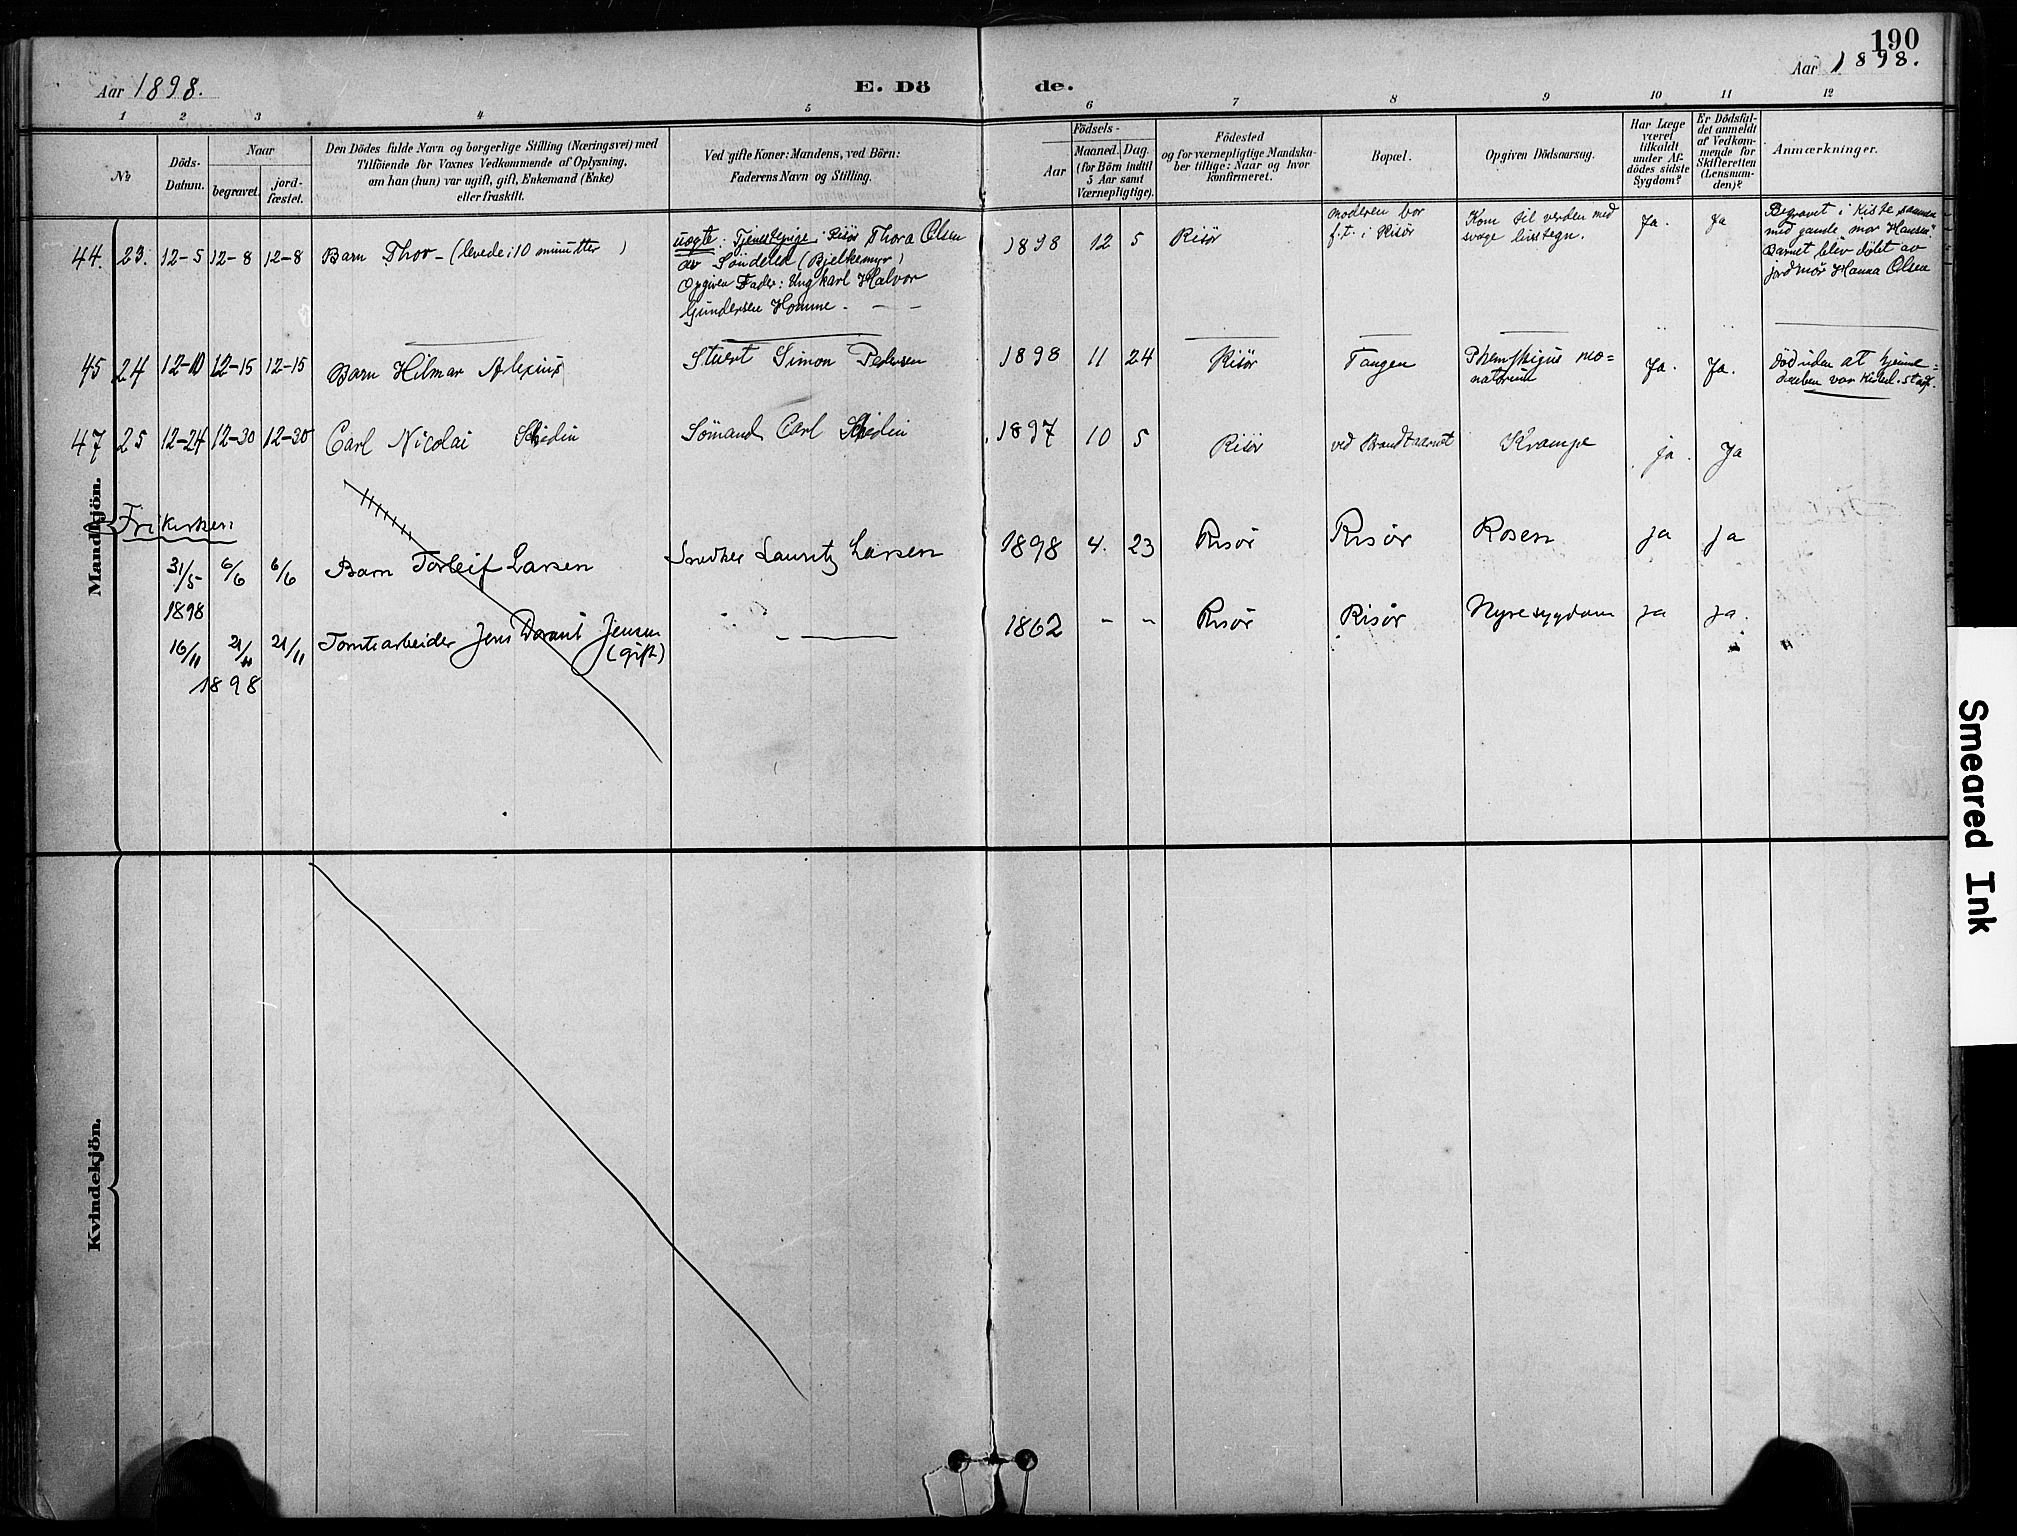 190
Aar 1898.
E. Dö
de.
Aar 1898.
1 2 3 4 5 6 7 8 9 10 11 12
No
Döds-
Datum.
Naar
begravet.
jord-
fæstet.
Den Dödes fulde Navn og borgerlige Stilling (Næringsvei) med
Tilföiende for Voxnes Vedkommende af Oplysning,
om han (hun) var ugift, gift, Enkemand (Enke)
eller fraskilt.
Ved gifte Koner: Mandens, ved Börn:
Faderens Navn og Stilling.
Födsels-
Aar
Maaned.
Dag.
(for Börn indtil
5 Aar samt
Værnepligtige).
Födested
og for værnepligtige Mandska-
ber tillige: Naar og hvor
konfirmeret.
Bopæl.
Opgiven Dödsaarsag.
Har Læge
været
tilkaldt
under Af-
dödes sidste
Sygdom?
Er Dödsfal-
det anmeldt
af Vedkom-
mende for
Skifteretten
(Lensman-
den)?
Anmærkninger.
Mandkjön.
44. 23. 12-5 12-8 12-8 Barn Thor - (levede i 10 minutter)
uægte: Tjenestepige i Risør Thora Olsen
av Söndeled (Bjelkemyr)
Opgiven Fader: Ungkarl Halvor
Gundersen Homme.
1898 12 5 Risør
moderen bor
f.t. i Risør
Kom til verden med
svage livstegn.
Ja. Ja
Begravet i kiste sammen
med gamle mor Hansen.
Barnet blev døbt av
jordmor Hanna Olsen
45 24 12-10 12-15 12-15 Barn Hilmar Alexius
Stuert Simon Pedersen
1898 11 24 Risør Tangen
Ja. Ja.
Död uden at hjemme-
daaben var
47 25 12-24 12-30 12-30 Carl Nicolai Schedin
Sömand Carl Schedin
1897 10 5 Risør ved Brandtaarnet Krampe ja. Ja
Frikirken:
31/5 6/6 6/6 Barn Torleif Larsen Snedker Lauritz Larsen 1898 4. 23 Risør Risør Rosen ja ja
1898
16/11 21/11 21/11 Tomtearbeider Jens Jensen
(gift)
1862 - - Risør Risør Nyresygdom ja ja.
1898
Kvindekjön.
Smeared Ink